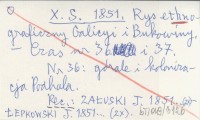 X. S. 1851. Rys etno-
graficzny Galicyi i Bukowiny
— Czas nr 36 i 37.
Nr 36: górale i koloniza-
cja Podhala.
Rec.: ZAŁUSKI J. 1851. (zx).
ŁEPKOWSKI J. 1851... (zx).